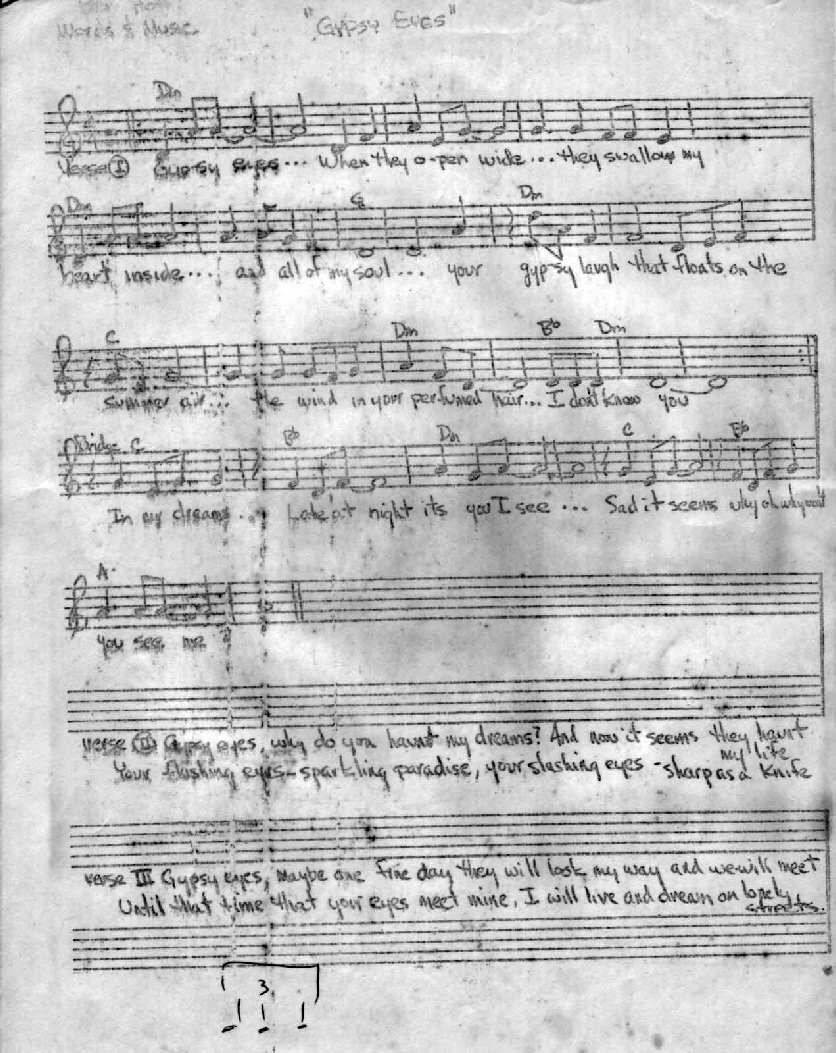 Words & Music "Gypsy Eyes"
Dm
Verse I Gypsy eyes... When they o-pen wide... they swallow my
Dm C Dm
heart inside... and all of my soul... your gypsy laugh that floats on the
C Dm Bb Dm
summer air... the wind in your perfumed hair... I dont know you
Bridge C Bb Dm C Bb
In my dreams... Late at night its you I see ... Sad it seems why oh why wont
A
you see me?
verse II Gypsy eyes, why do you haunt my dreams? And now it seems they haunt
my life
Your flashing eyes - sparkling paradise, your slashing eyes - sharp as a Knife
verse III Gypsy eyes, maybe one fine day they will look my way and we will meet
Until that time that your eyes meet mine, I will live and dream on lonely
streets.
3